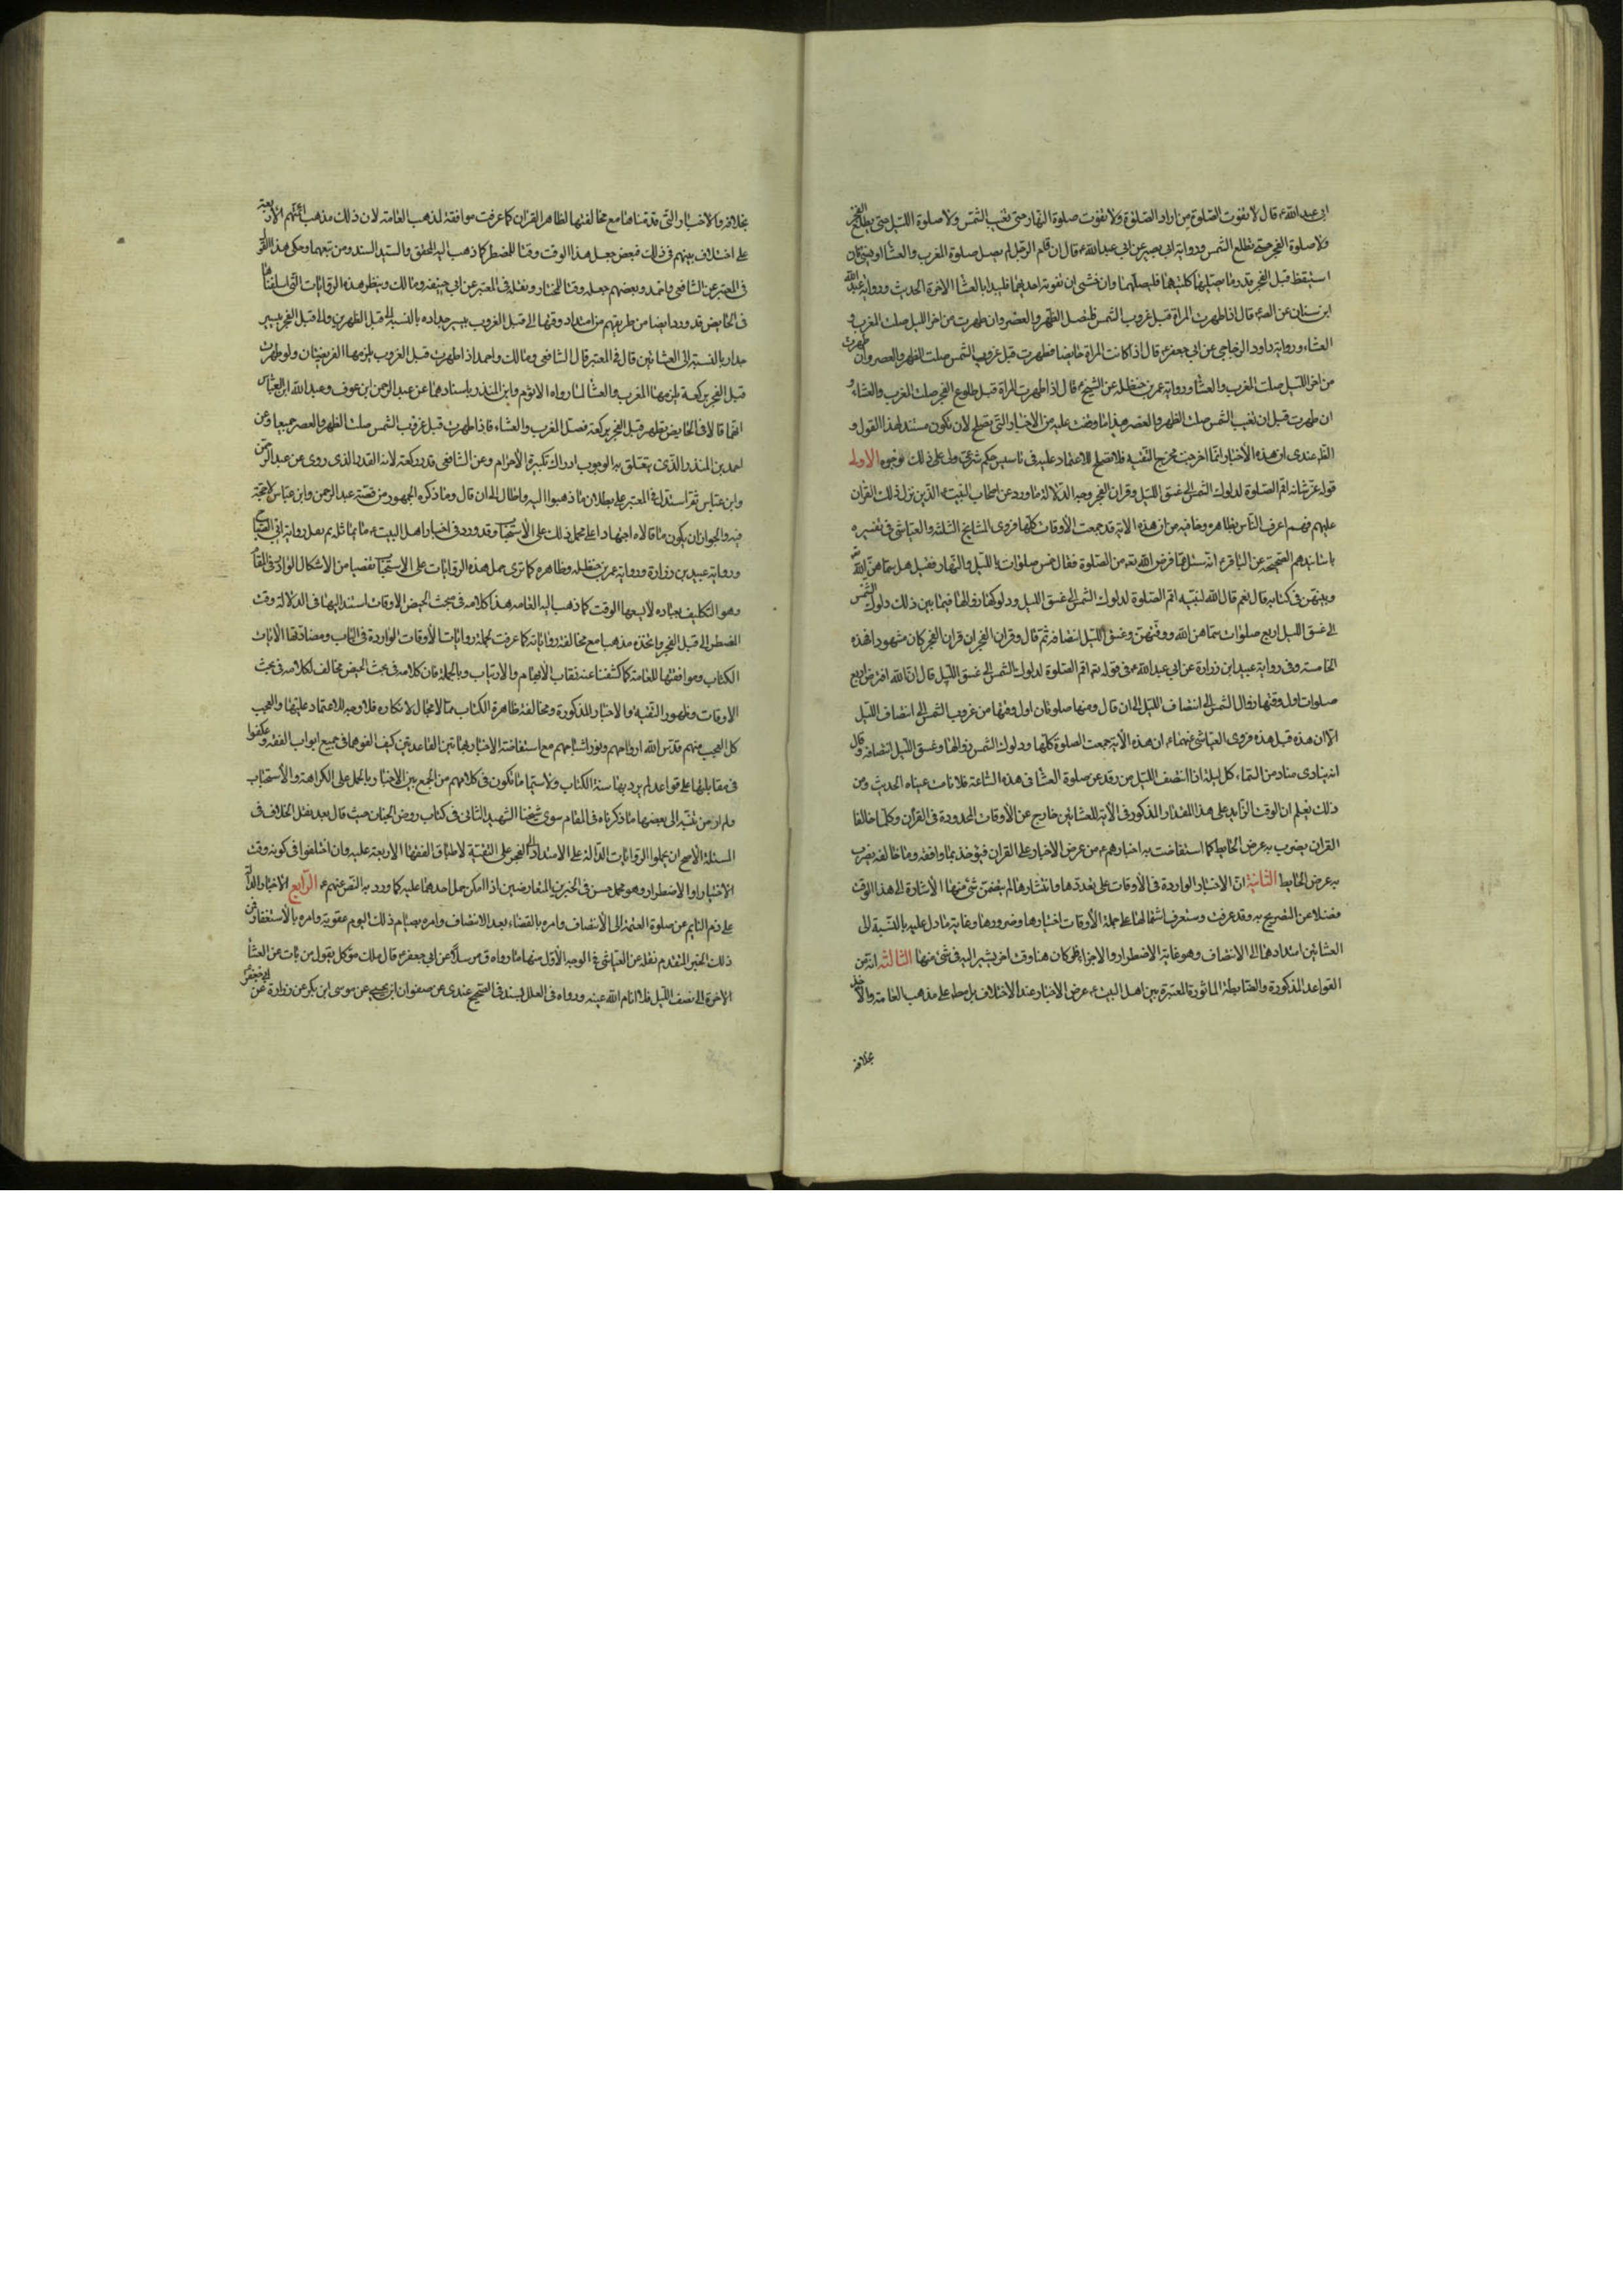 ابى عبد الله ع قال لا تفوت الصلوة من اراد الصلوة ولا تفوت صلوة النهار حتى تغيب الشمس ولا صلوة الليل حتى يطلع الفجر
ولا صلوة الفجر حتى تطلع الشمس ورواية ابى بصير عن ابى عبد الله ع قال ان نام الرجل لم يصل صلوة المغرب والعشا او نسى فان
استيقظ قبل الفجر قدر ما يصليهما كلتيهما فليصلهما وان خشى ان تفوته احديهما فليبدا بالعشا الاخرة الحديث ورواية عبد الله
ابن سنان عن الصادق قال اذا طهرت المراة قبل غروب الشمس فلتصل الظهر والعصر وان طهرت من اخر الليل صلت المغرب و
العشاء ورواية داود الزجاجى عن ابى جعفر ع قال اذا كانت المراة حايضا فطهرت قبل غروب الشمس صلت الظهر والعصر وان طهرت
من اخر الليل صلت المغرب والعشا ورواية عمر بن حنظلة عن الشيخ ع قال اذا طهرت المراة قبل طلوع الفجر صلت المغرب والعشاء و
ان طهرت قبل ان تغيب الشمس صلت الظهر والعصر هذا ما وقفت عليه من الاخبار التى تصلح لان تكون مستند لهذا القول و
الظ عندى ان هذه الأخبار انما خرجت مخرج التقية فلا تصلح للاعتماد عليه فى تاسيس حكم شرعى ولى على ذلك وجوه الاول
قوله عز شانه اقم الصلوة لدلوك الشمس الى غسق الليل وقران الفجر وجه الدلالة ما ورد عن اصحاب البيت ع الذين نزل ذلك القران
عليهم فهم اعرف الناس بظاهره وخافيه من ان هذه الاية قد جمعت الأوقات كلها فروى المشايخ الثلثة والعياشى فى تفسيره
باسانيدهم الصحيحة عن الباقر ع انه سئل عما فرض الله تعه من الصلوة فقال خمس صلوات بالليل والنهار فقيل هل سماهن الله
وبينهن فى كتابه قال نعم قال الله لنبيه اقم الصلوة لدلوك الشمس الى غسق الليل ودلوكها زوالها فيما بين ذلك دلوك الشمس
الى غسق الليل اربع صلوات سماهن الله ووقتهن وغسق الليل انتصافه ثم قال وقران الفجر ان قران الفجر كان مشهودا فهذه
الخامسة وفى رواية عبيد ابن زرارة عن ابى عبد الله ع فى قوله تعه اقم الصلوة لدلوك الشمس الى غسق الليل قال ان الله افترض اربع
صلوات اول وقتها زوال الشمس الى انتصاف الليل الى ان قال ومنها صلوتان اول وقتها من غروب الشمس الى انتصاف الليل
الا ان هذه قبل هذه فروى العياشى عنهما ع ان هذه الأية جمعت الصلوة كلها ودلوك الشمس زوالها وغسق الليل انتصافه وقال
انه ينادى مناد من السماء كل ليلة اذا انتصف الليل من رقد عن صلوة العشا فى هذه الساعة فلا نامت عيناه الحديث ومن
ذلك يعلم ان الوقت الزايد على هذا المقدار المذكور فى الأية للعشائين خارج عن الأوقات المحدودة فى القران وكلما خالفا
القران يضرب به عرض الحايط كما استفاضت به اخبارهم ع من عرض الاخبار على القران فيؤخذ بما وافقه وما خالفه يضرب
به عرض الحايط الثانية ان الاخبار الواردة فى الأوقات على تعددها وانتشارها لم يتضمن شئ منها الأشارة الى هذا الوقت
فضلا عن التصريح به وقد عرفت وستعرف اشتمالها على جملة الأوقات اختيارها وضرورها وغاية ما دل عليه بالنسبة الى
العشائين امتدادها الى الانتصاف وهو غاية الاضطرار والاجزا فلو كان هنا وقت اخر يشير اليه فى شئ منها الثالثة انه من
القواعد المذكورة والضابطة الماثورة المعتبرة بين اهل البيت ع عرض الاخبار عند الاختلاف على مذهب العامة والاخذ
بخلافه
بخلافه والاخبار التى قدمناها مع مخالفتها لظاهر القران كما عرفت موافقة لمذهب العامة لان ذلك مذهب ائمتهم الأربعة
على اختلاف بينهم فى ذلك فبعض جعل هذا الوقت وقتا للمضطر كما ذهب اليه المحقق والسيد السند ومن تبعهما وحكى هذا القول
فى المعتبر عن الشافعى واحمد وبعضهم جعله وقتا للمختار ونقله فى المعتبر عن ابى حنيفة ومالك وينظر هذه الروايات التى اسلفناها
فى الحايض قد ورد ايضا من طريقهم من امتداد وقتها الى قبل الغروب بيسير بالنسبة الى الظهرين والى قبل الفجر بيسير
بالنسبة الى العشائين قال فى المعتبر قال الشافعى ومالك واحمد اذا طهرت قبل الغروب يلزمها الفريضتان ولو طهرت
قبل الفجر بركعة لزمها المغرب والعشا لما رواه الاثرم وابن المنذر باسنادهما عن عبد الرحمن ابن عوف وعبد الله ابن العباس
انهما قالا فى الحايض تطهر قبل الفجر بركعة فصل المغرب والعشاء فاذا طهرت قبل غروب الشمس صلت الظهر والعصر جميعا وعن
احمد بن المنذر الذى يتعلق به الوجوب ادراك تكبيرة الأحرام وعن الشافعى قدر ركعة لانه القدر الذى روى عن عبد الرحمن
وابن عباس ثم استدل فى المعتبر على بطلان ما ذهبوا اليه واطال الى ان قال وما ذكره الجمهور من قصة عبد الرحمن وابن عباس لا حجة
فيه والجواز ان يكون ما قالاه اجتهادا على محمل ذلك على الأستحباب وقد ورد فى اخبار اهل البيت ع ما يماثله ثم نقل رواية ابى الصباح
ورواية عبيد بن زرارة ورواية عمر بن حنظلة وظاهره كما ترى حمل هذه الروايات على الاستحباب تفصيا من الاشكال الوارد فى المقام
وهو التكليف بعبادة لا يسعها الوقت كما ذهب اليه العامة هذا كلامه فى مبحث الحيض الأوقات استند اليها فى الدلالة وقت
المضطر الى قبل الفجر واتخذه مذهبا مع مخالفة رواياته كما عرفت لجملة روايات الأوقات الواردة فى الباب ومضادتها الأيات
الكتاب وموافقتها للعامة كما كشفنا عنه نقاب الأبهام والارتياب وبالجملة فان كلامه فى بحث الحيض مخالف لكلامه فى بحث
الاوقات وظهور التقية والاخبار المذكورة ومخالفة ظاهرة الكتاب مما لا مجال لانكاره فلا وجه للاعتماد عليها والعجب
كل العجب منهم قدس الله ارواحهم ونور اشباحهم مع استفاضة الاخبار بهاتين القاعدتين كيف الغوهما فى جميع ابواب الفقه وعكفوا
فى مقابلتها على قواعد لم يرد بها سنة الكتاب ولا سيما ما تكون فى كلامهم من الجمع بين الاخبار بالحمل على الكراهة والأستحباب
ولم ار من تنبه الى بعضها مما ذكرناه فى المقام سوى شيخنا الشهيد الثانى فى كتاب روض الجنان حيث قال بعد نقل الخلاف فى
المسئلة الأصح ان يحملوا الروايات الدالة على الامتداد الى الفجر على التقية لاطباق الفقهاء الاربعة عليه وان اختلفوا فى كونه وقت
الاختيار او الاضطرار وهو محمل حسن فى الخبرين المتعارضين اذا امكن حمل احدهما عليه كما ورد به النص عنهم ع الرابع الاخبار الدالة
على ذم النايم عن صلوة العتمة الى الأنتصاف وامره بالقضاء بعد الانتصاف وامره بصيام ذلك اليوم عقوبة وامره بالأستغفار فمن
ذلك الخبر المتقدم نقله عن العياشى فى الوجه الأول منها ما رواه ق مرسلا عن ابى جعفر ع قال ملك موكل يقول من بات عن العشا
الاخرة الى نصف الليل فلا انام الله عينه ورواه فى العلل بسند فى الصحيح عندى عن صفوان ابن يحيى عن موسى ابن بكر عن زرارة عن ابى جعفر